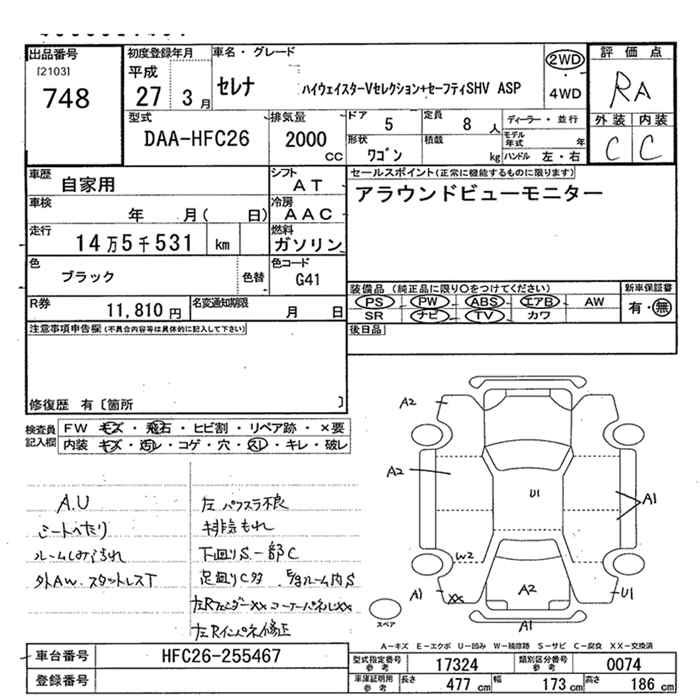 出品番号
[2103]
748
初度登録年月
平成
27 3月
車名・グレード
セレナ ハイウェイスターVセレクション+セーフティSHV ASP
2WD
・
4WD
評価点
RA
外装 内装
C C
型式
DAA-HFC26
排気量
2000
CC
ドア 5
定員 8人
形状 ワゴン
積載 kg
ディーラー・並行
モデル年式 年
ハンドル 左・右
車歴 自家用
シフト AT
車検 年 月( 日)
冷房 AAC
走行 14万5千531 km
燃料 ガソリン
色 ブラック 色替
色コード G41
R券 11,810円
名変通知期限 月 日
セールスポイント(正常に機能するものに限ります)
アラウンドビューモニター
装備品 (純正品に限り○をつけてください)
PS PW ABS エアB AW
SR ナビ TV カワ
新車保証書
有・無
後日品
注意事項申告欄(不具合内容等は具体的に記入して下さい)
修復歴 有〔箇所 〕
検査員記入欄
FW キズ・飛石・ヒビ割・リペア跡・×要
内装 キズ・汚レ・コゲ・穴・スレ・キレ・破レ
A.U
シートへたり
外AW.スタットレスT
左パワスラ不良
排気もれ
下回りS一部C
足回りC多
左Rフェンダーxx コーナーパネルxx
左Rインパネ修正
A2
A2
U1
A1
W2
A1
XX
A2
U1
A1
スペア
A-キズ E-エクボ U-凹み W-補修跡 S-サビ C-腐食 XX-交換済
車台番号 HFC26-255467
登録番号
型式指定番号 参考 17324
類別区分番号 参考 0074
車庫証明用 参考 長さ 477 cm 幅 173 cm 高さ 186 cm